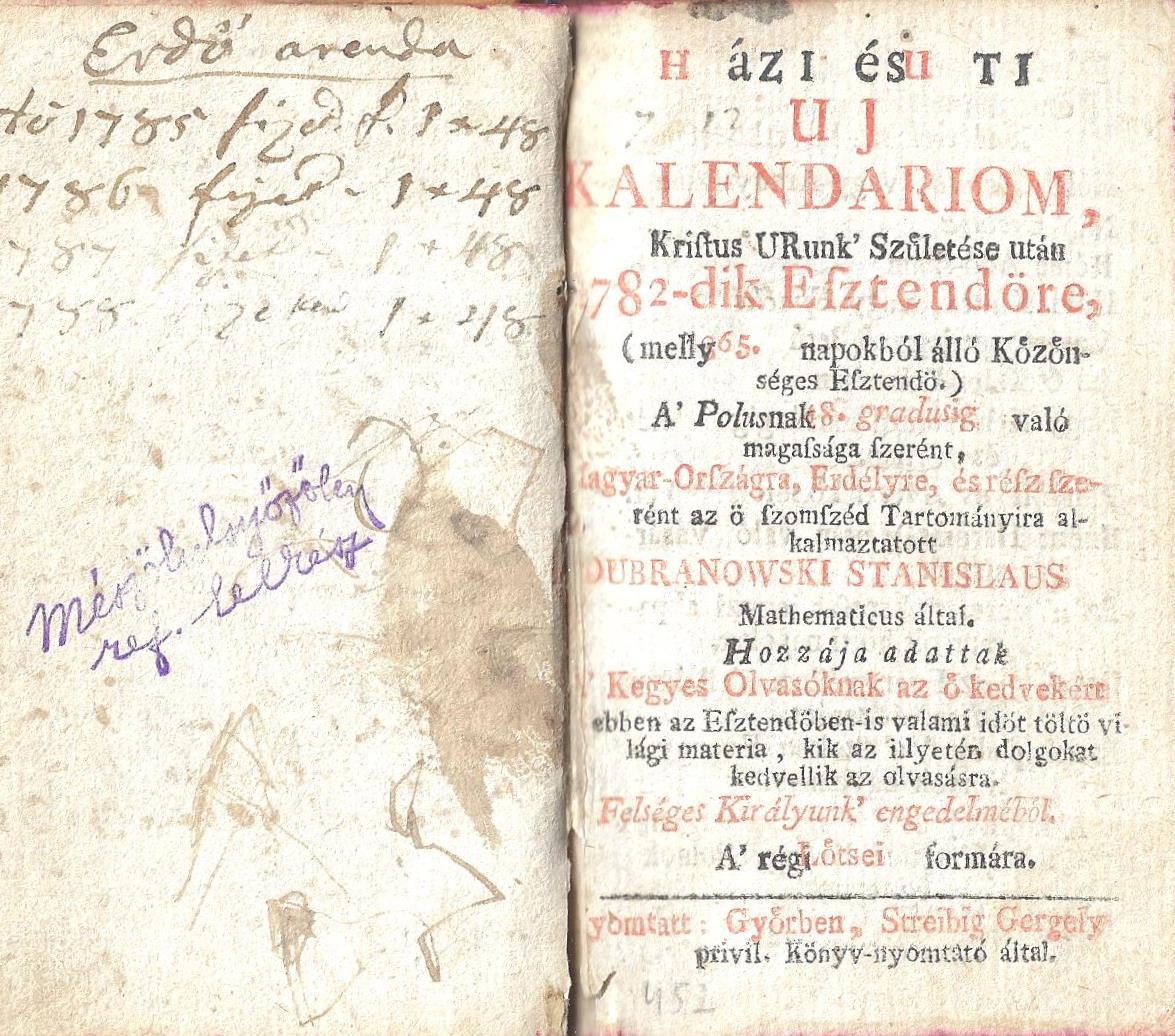 Erdő arenda
1785 fizet f. 1 x 48
1786 fizet - 1 x 48
787 fizet - 1 x 48
788 1 x 48
ref. lelkész
HáZI és UTI
UJ
KALENDARIOM,
Kriſtus URunk’ Szůletése után
782-dik Eſztendöre,
(melly 365. napokból álló Kőzön-
séges Eſztendö.)
A’ Polusnak 48. gradusig való
magaſsága ſzerént,
agyar-Orſzágra, Erdélyre, és réſz ſze-
rént az ö ſzomſzéd Tartományira al-
kalmaztatott
DUBRANOWSKI STANISLAUS
Mathematicus által.
Hozzája adattak
’ Kegyes Olvasóknak az ő kedvekért
ebben az Eſztendöben-is valami időt töltö vi-
lági materia, kik az illyetén dolgokat
kedvellik az olvasásra.
Felséges Királyunk’ engedelméből.
A’ régi Lőtsei formára.
yomtatt: Győrben, Streibig Gergely
privil. Könyv-nyomtató által.
452